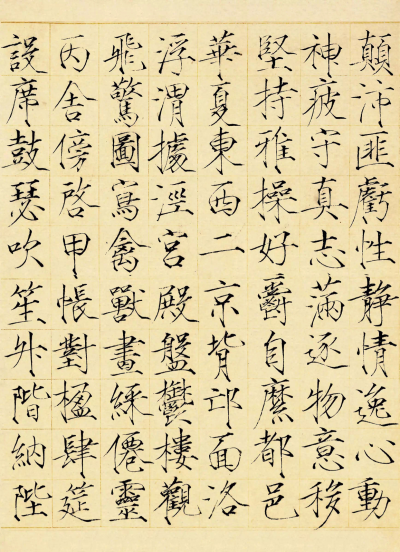 顛沛匪虧性靜情逸心動
神疲守真志滿逐物意移
堅持雅操好爵自縻都邑
華夏東西二京背邙面洛
浮渭據涇宮殿盤鬱樓觀
飛驚圖寫禽獸畫綵僊靈
丙舍傍啓甲帳對楹肆筵
設席鼓瑟吹笙升階納陛